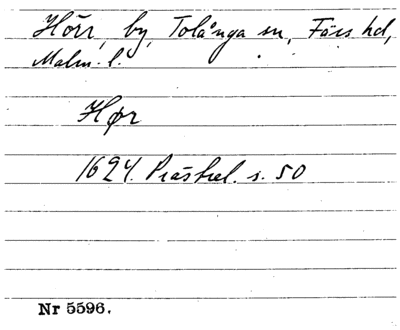 Hörr, by, Tolånga sn, Färs hd,
Malm. l.
Hør
1624. Prästrel. s. 50
Nr 5596.